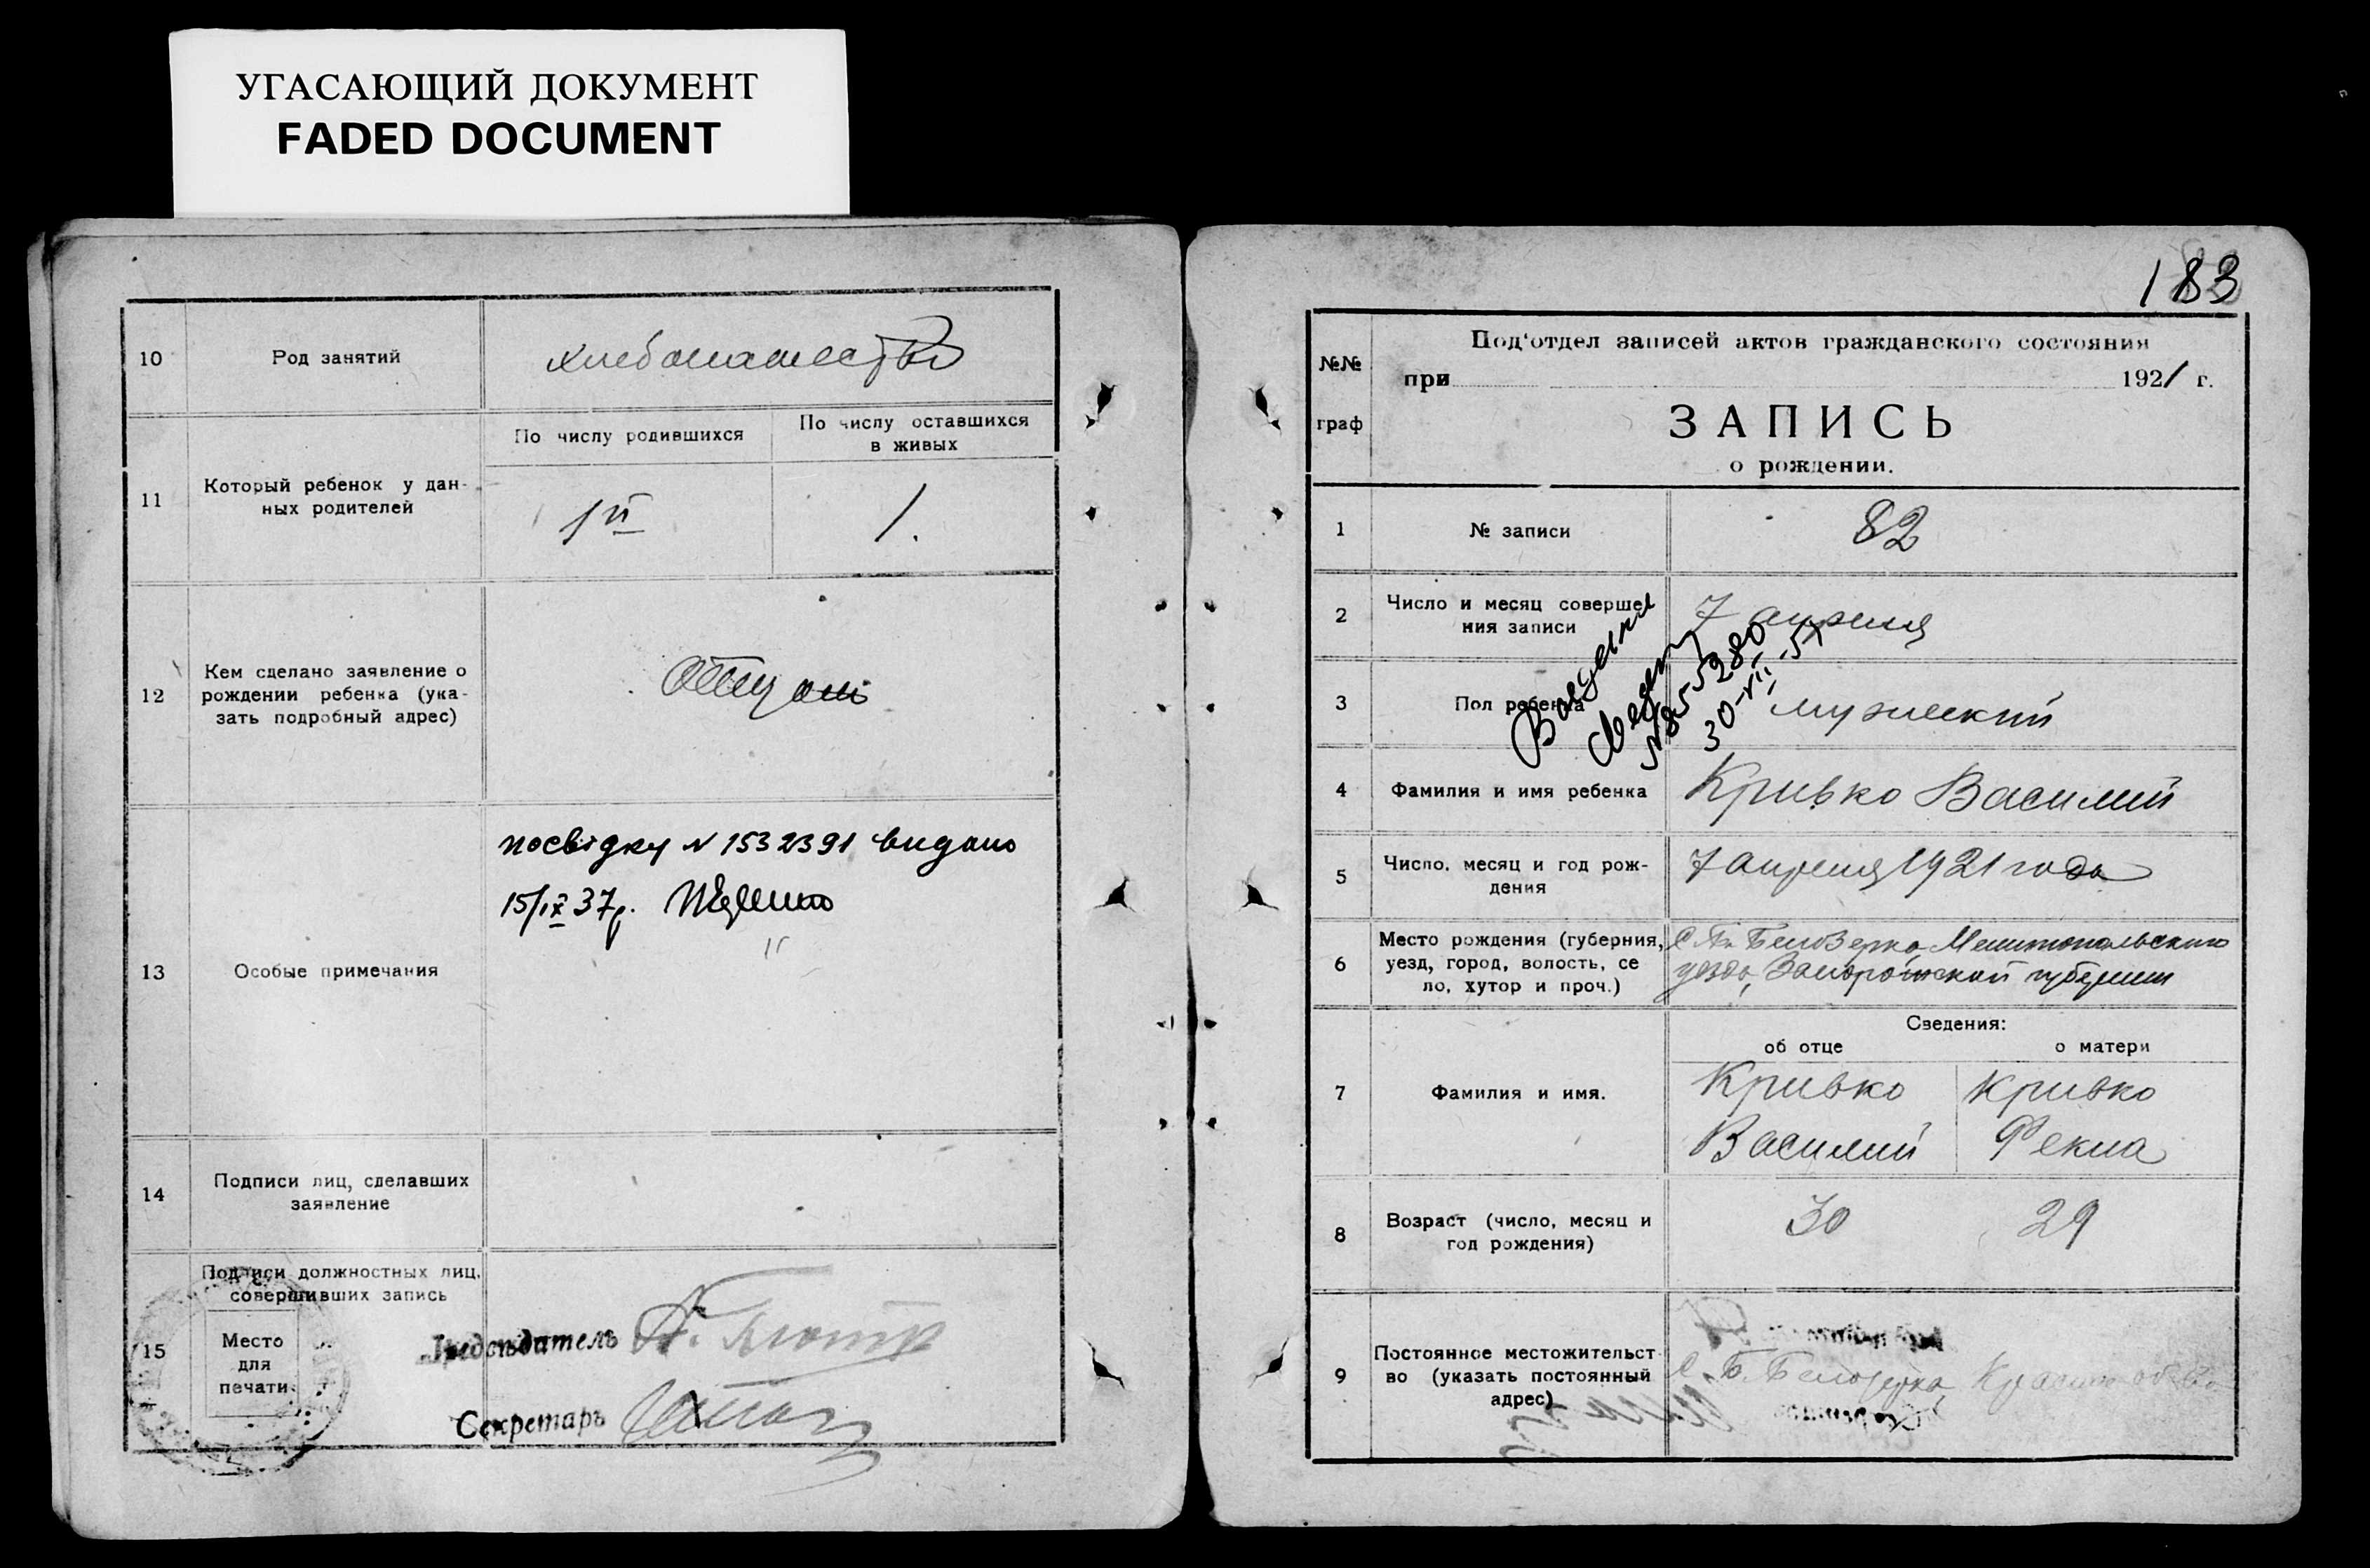 УГАСАЮЩИЙ ДОКУМЕНТ
FADED DOCUMENT
10
Род занятий
хлебопашество
11
Который ребенок у дан-
ных родителей
По числу родившихся
По числу оставшихся
в живых
1й
1.
12
Кем сделано заявление о
рождении ребенка (ука-
зать подробный адрес)
Отцом
13
Особые примечания
посвідку N 1532391 видано
15/IX 37р.
14
Подписи лиц, сделавших
заявление
15
Подписи должностных лиц,
совершивших запись
Место
для
печати
Председатель
Секретарь
183
№№
граф
Под'отдел записей актов гражданского состояния
при 1921 г.
ЗАПИСЬ
о рождении.
1
№ записи
82
2
Число и месяц соверше
ния записи
7 апреля
3
Пол ребенка
мужеский
N 8555280
30-VII-51
4
Фамилия и имя ребенка
Кривко Василий
5
Число, месяц и год рож-
дения
7 апреля 1921 года
6
Место рождения (губерния,
уезд, город, волость, се
ло, хутор и проч.)
Белозерка, Мелитопольского
уезда, Запорожской губернии
7
Фамилия и имя.
Сведения:
об отце
о матери
Кривко
Василий
Кривко
Фекла
8
Возраст (число, месяц и
год рождения)
30
29
9
Постоянное местожительст
во (указать постоянный
адрес)
С. Б. Белозерка